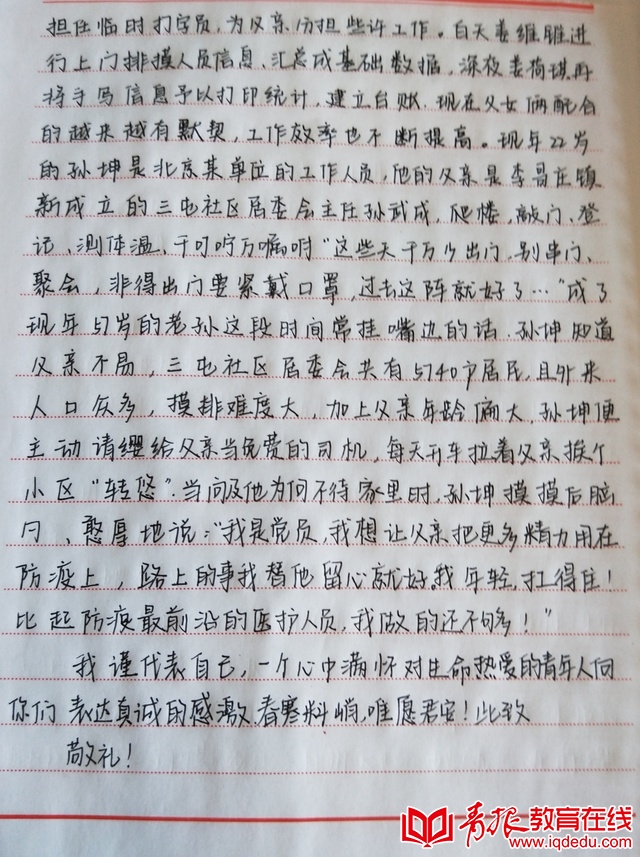 担任临时打字员，为父亲分担些许工作。白天姜维胜进
行上门排摸人员信息、汇总成基础数据，深夜姜荷琪再
将手写信息予以打印统计，建立台账．现在父女俩配合
的越来越有默契，工作效率也不断提高。现年22岁
的孙坤是北京某单位的工作人员，他的父亲是李哥庄镇
新成立的三屯社区居委会主任孙武成，爬楼，敲门、登
记、测体温、千叮咛万嘱咐“这些天千万少出门，别串门、
聚会，非得出门要紧戴口罩，过去这阵就好了…”成了
现年57岁的老孙这段时间常挂嘴边的话．孙坤知道
父亲不易，三屯社区居委会共有5740户居民，且外来
人口众多，摸排难度大，加上父亲年龄偏大，孙坤便
主动请缨给父亲当免费的司机，每天开车拉着父亲挨个
小区“转悠”．当问及他为何不待家里时，孙坤摸摸后脑
、憨厚地说：“我是党员，我想让父亲把更多精力用在
防疫上，路上的事我替他留心就好。我年轻，扛得住！
比起防疫最前沿的医护人员，我做的还不够多！”
我谨代表自己，一个心中满怀对生命热爱的青年人向
你们表达真诚的感激．春寒料峭，唯愿君安！此致
敬礼！
青报教育在线
www.iqdedu.com